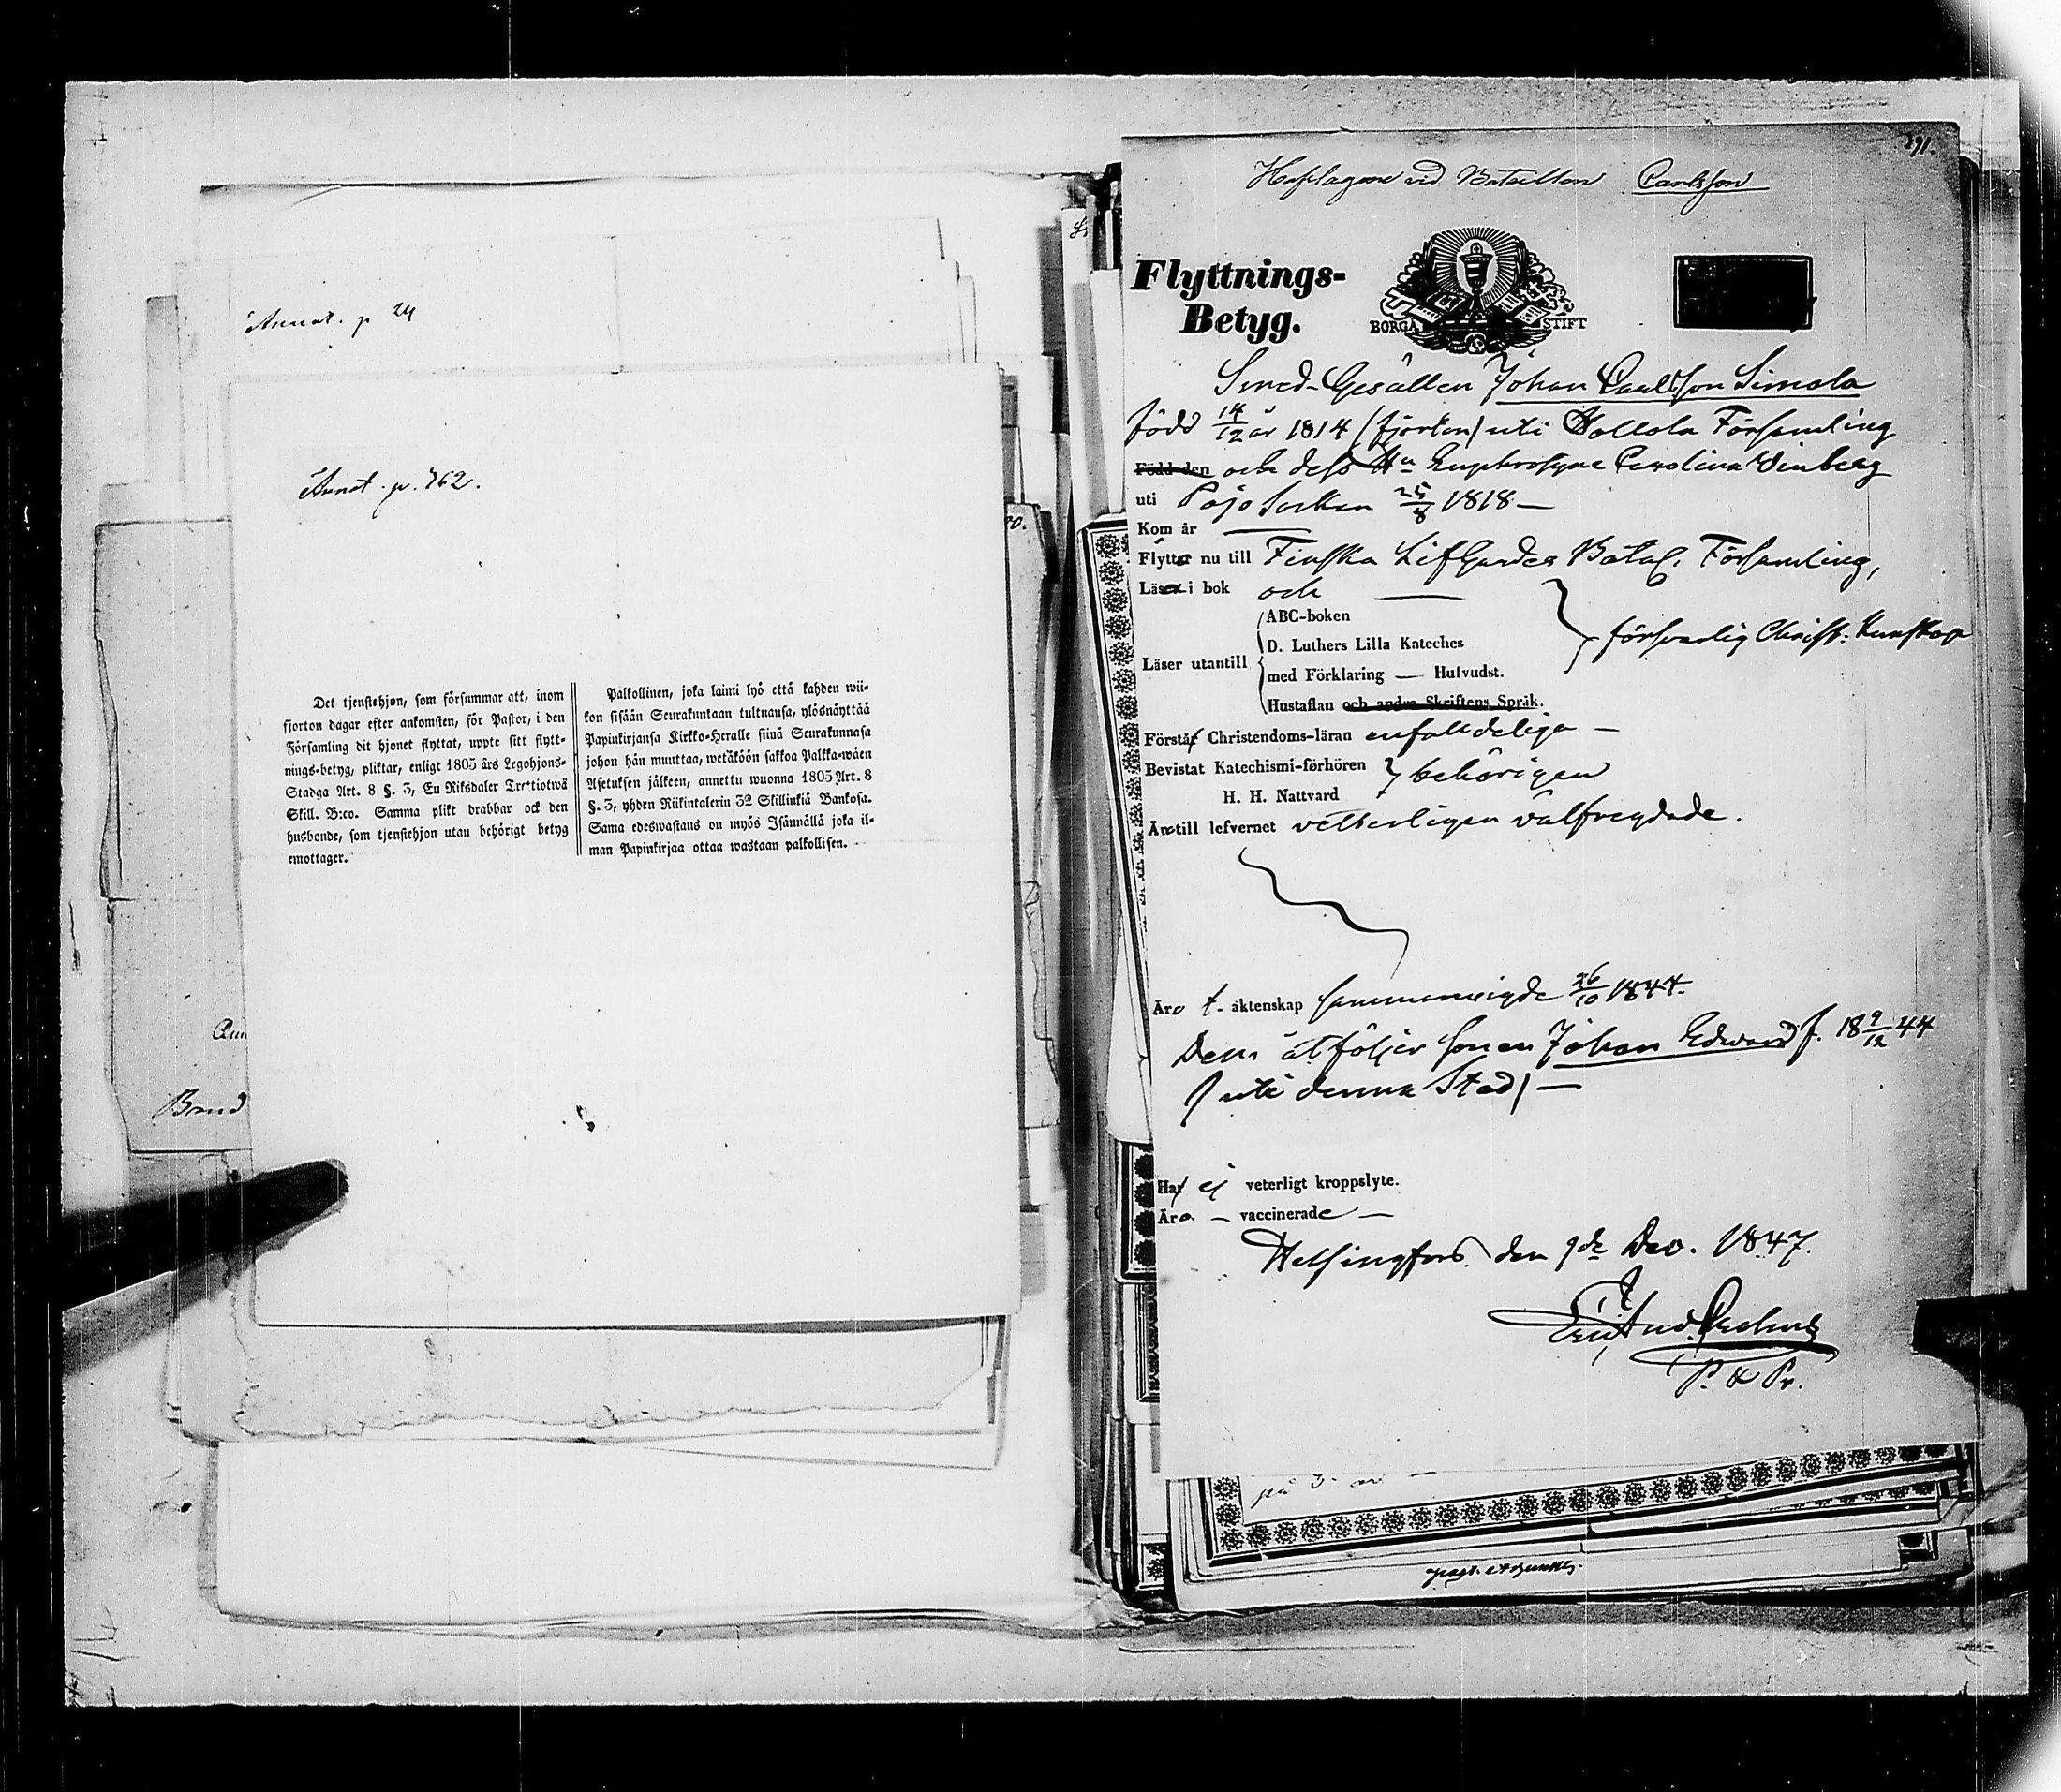 Annot. p 24
Annot. p. 762.
Det tjenstehjon, som försummar att, inom
fjorton dagar efter ankomsten, för Pastor, i den
Församling dit hjonet flyttat, uppte sitt flytt-
nings-betyg, pliktar, enligt 1805 års Legohjons-
Stadga Art. 8 §. 3, En Riksdaler Trettiotwå
Skill. B:co. Samma plikt drabbar ock den
husbonde, som tjenstehjon utan behörigt betyg
emottager.
Palkollinen, joka laimi lyö että kahden wii-
kon sisään Seurakuntaan tultuansa, ylösnäyttää
Papinkirjansa Kirkko-Heralle siinä Seurakunnasa
johon hän muuttaa, wetäköön sakkoa Palkka-wäen
Asetuksen jälkeen, annettu wuonna 1805 Art. 8
§. 3, yhden Riikintalerin 32 Skillinkiä Bankosa.
Sama edeswastaus on myös Isännällä joka il-
man Papinkirjaa ottaa wastaan palkollisen.
Brand
291.
vid Bataillon Carlsson
Flyttnings-
Betyg.
BORGÅ STIFT
Smed-Gesällen Johan Carlsson Simola
född 14/12 år 1814 (fjorton) uti Hollola Församling
Född den och dess Hu Euphrosyne Carolina Vinberg
uti Pojo Socken 25/8 1818 —
Kom år —
Flyttar nu till Finska Lif Gardes Batal. Församling,
Läser i bok och —
ABC-boken
D. Luthers Lilla Kateches
Läser utantill
med Förklaring — Hufvudst.
Hustaflan och andra Skriftens Språk.
försvarlig Christ: Kunskap
Förstår Christendoms-läran enfalldeliga —
Bevistat Katechismi-förhören
H. H. Nattvard
behörigen
Äro till lefvernet vetterligen välfregdade.
Äro t - äktenskap sammanvigde 26/10 1844.
Dem åtföljer sonen Johan Edward f. 18 9/12 44
(uti denna Stad) —
Har ej veterligt kroppslyte.
Äro — vaccinerade —
Helsingfors den 9de Dec. 1847.
P. & Pr.